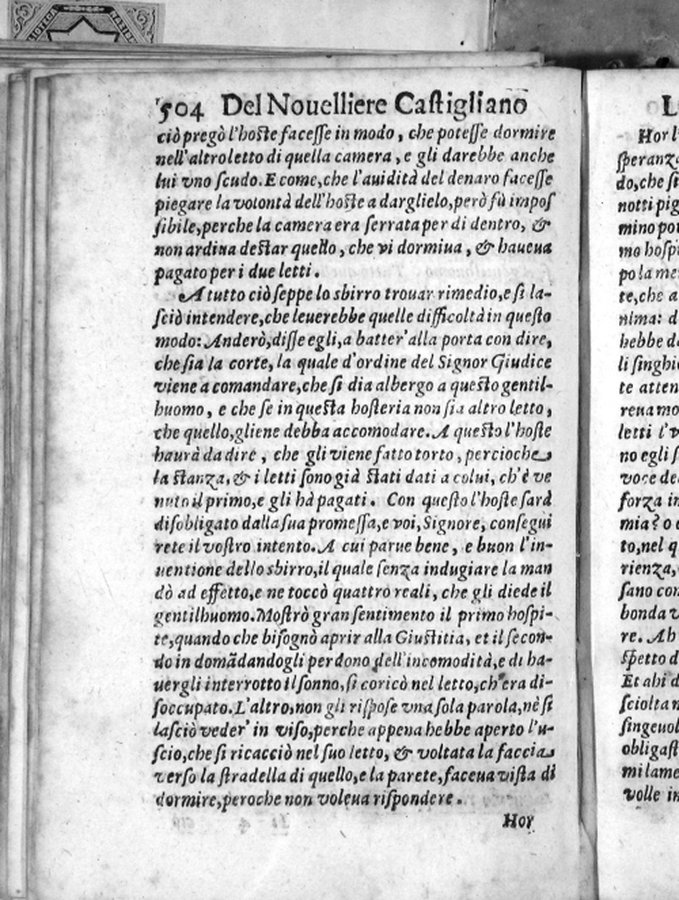 504 Del Nouelliere Castigliano
ciò pregò l'hoste facesse in modo, che potesse dormire
nell'altro letto di quella camera, e gli darebbe anche
lui vno scudo. E come, che l'auidità del denaro facesse
piegare la volontà dell'hoste a darglielo, però fù impos
sibile, perche la camera era serrata per di dentro, &
non ardiua destar quello, che vi dormiua, & haueua
pagato per i due letti.
A tutto ciò seppe lo sbirro trouar rimedio, e si la-
sciò intendere, che leuerebbe quelle difficoltà in questo
modo: Anderò, disse egli, a batter' alla porta con dire,
che sia la corte, la quale d'ordine del Signor Giudice
viene a comandare, che si dia albergo a questo gentil-
huomo, e che se in questa hosteria non sia altro letto,
che quello, gliene debba accomodare. A questo l'hoste
haurà da dire, che gli viene fatto torto, percioche
la stanza, & i letti sono già stati dati a colui, ch'è ve
nuto il primo, e gli hà pagati. Con questo l'hoste sarà
disobligato dalla sua promessa, e voi, Signore, consegui
rete il vostro intento. A cui parue bene, e buon l'in-
uentione dello sbirro, il quale senza indugiare la man
dò ad effetto, e ne toccò quattro reali, che gli diede il
gentilhuomo. Mostrò gran sentimento il primo hospi-
te, quando che bisognò aprir alla Giustitia, et il secon-
do in domãdandogli perdono dell'incomodità, e di ha-
uergli interrotto il sonno, si coricò nel letto, ch'era di-
soccupato. L'altro, non gli rispose vna sola parola, nè si
lasciò veder' in viso, perche appena hebbe aperto l'u-
scio, che si ricacciò nel suo letto, & voltata la faccia
verso la stradella di quello, e la parete, faceua vista di
dormire, peroche non voleua rispondere.
Hor
L
Hor l'
speranza
do, che si
notti pig
mino pot
mo hospi
po la me
te, che a
nima: d
hebbe d
li singhi
te atten
reua mo
letti l'v
no egli s
voce de
forza in
mia? o
to, nel q
rienza,
sano con
bonda v
re. Ah
spetto d
Et ahi d
sciolta n
singeuol
obligast
mi lame
volle in